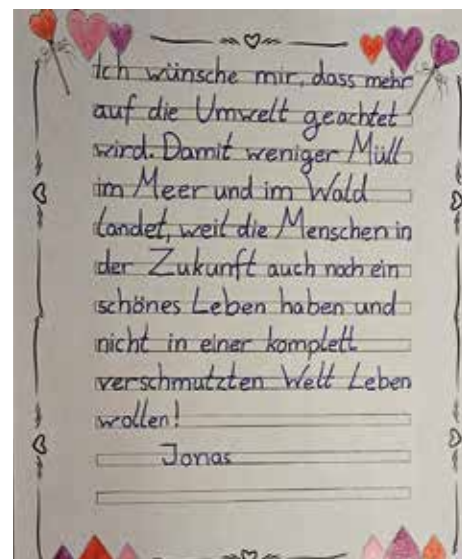 Ich wünsche mir, dass mehr
auf die Umwelt geachtet
wird. Damit weniger Müll
im Meer und im Wald
landet, weil die Menschen in
der Zukunft auch noch ein
schönes Leben haben und
nicht in einer komplett
verschmutzten Welt Leben
wollen!
Jonas